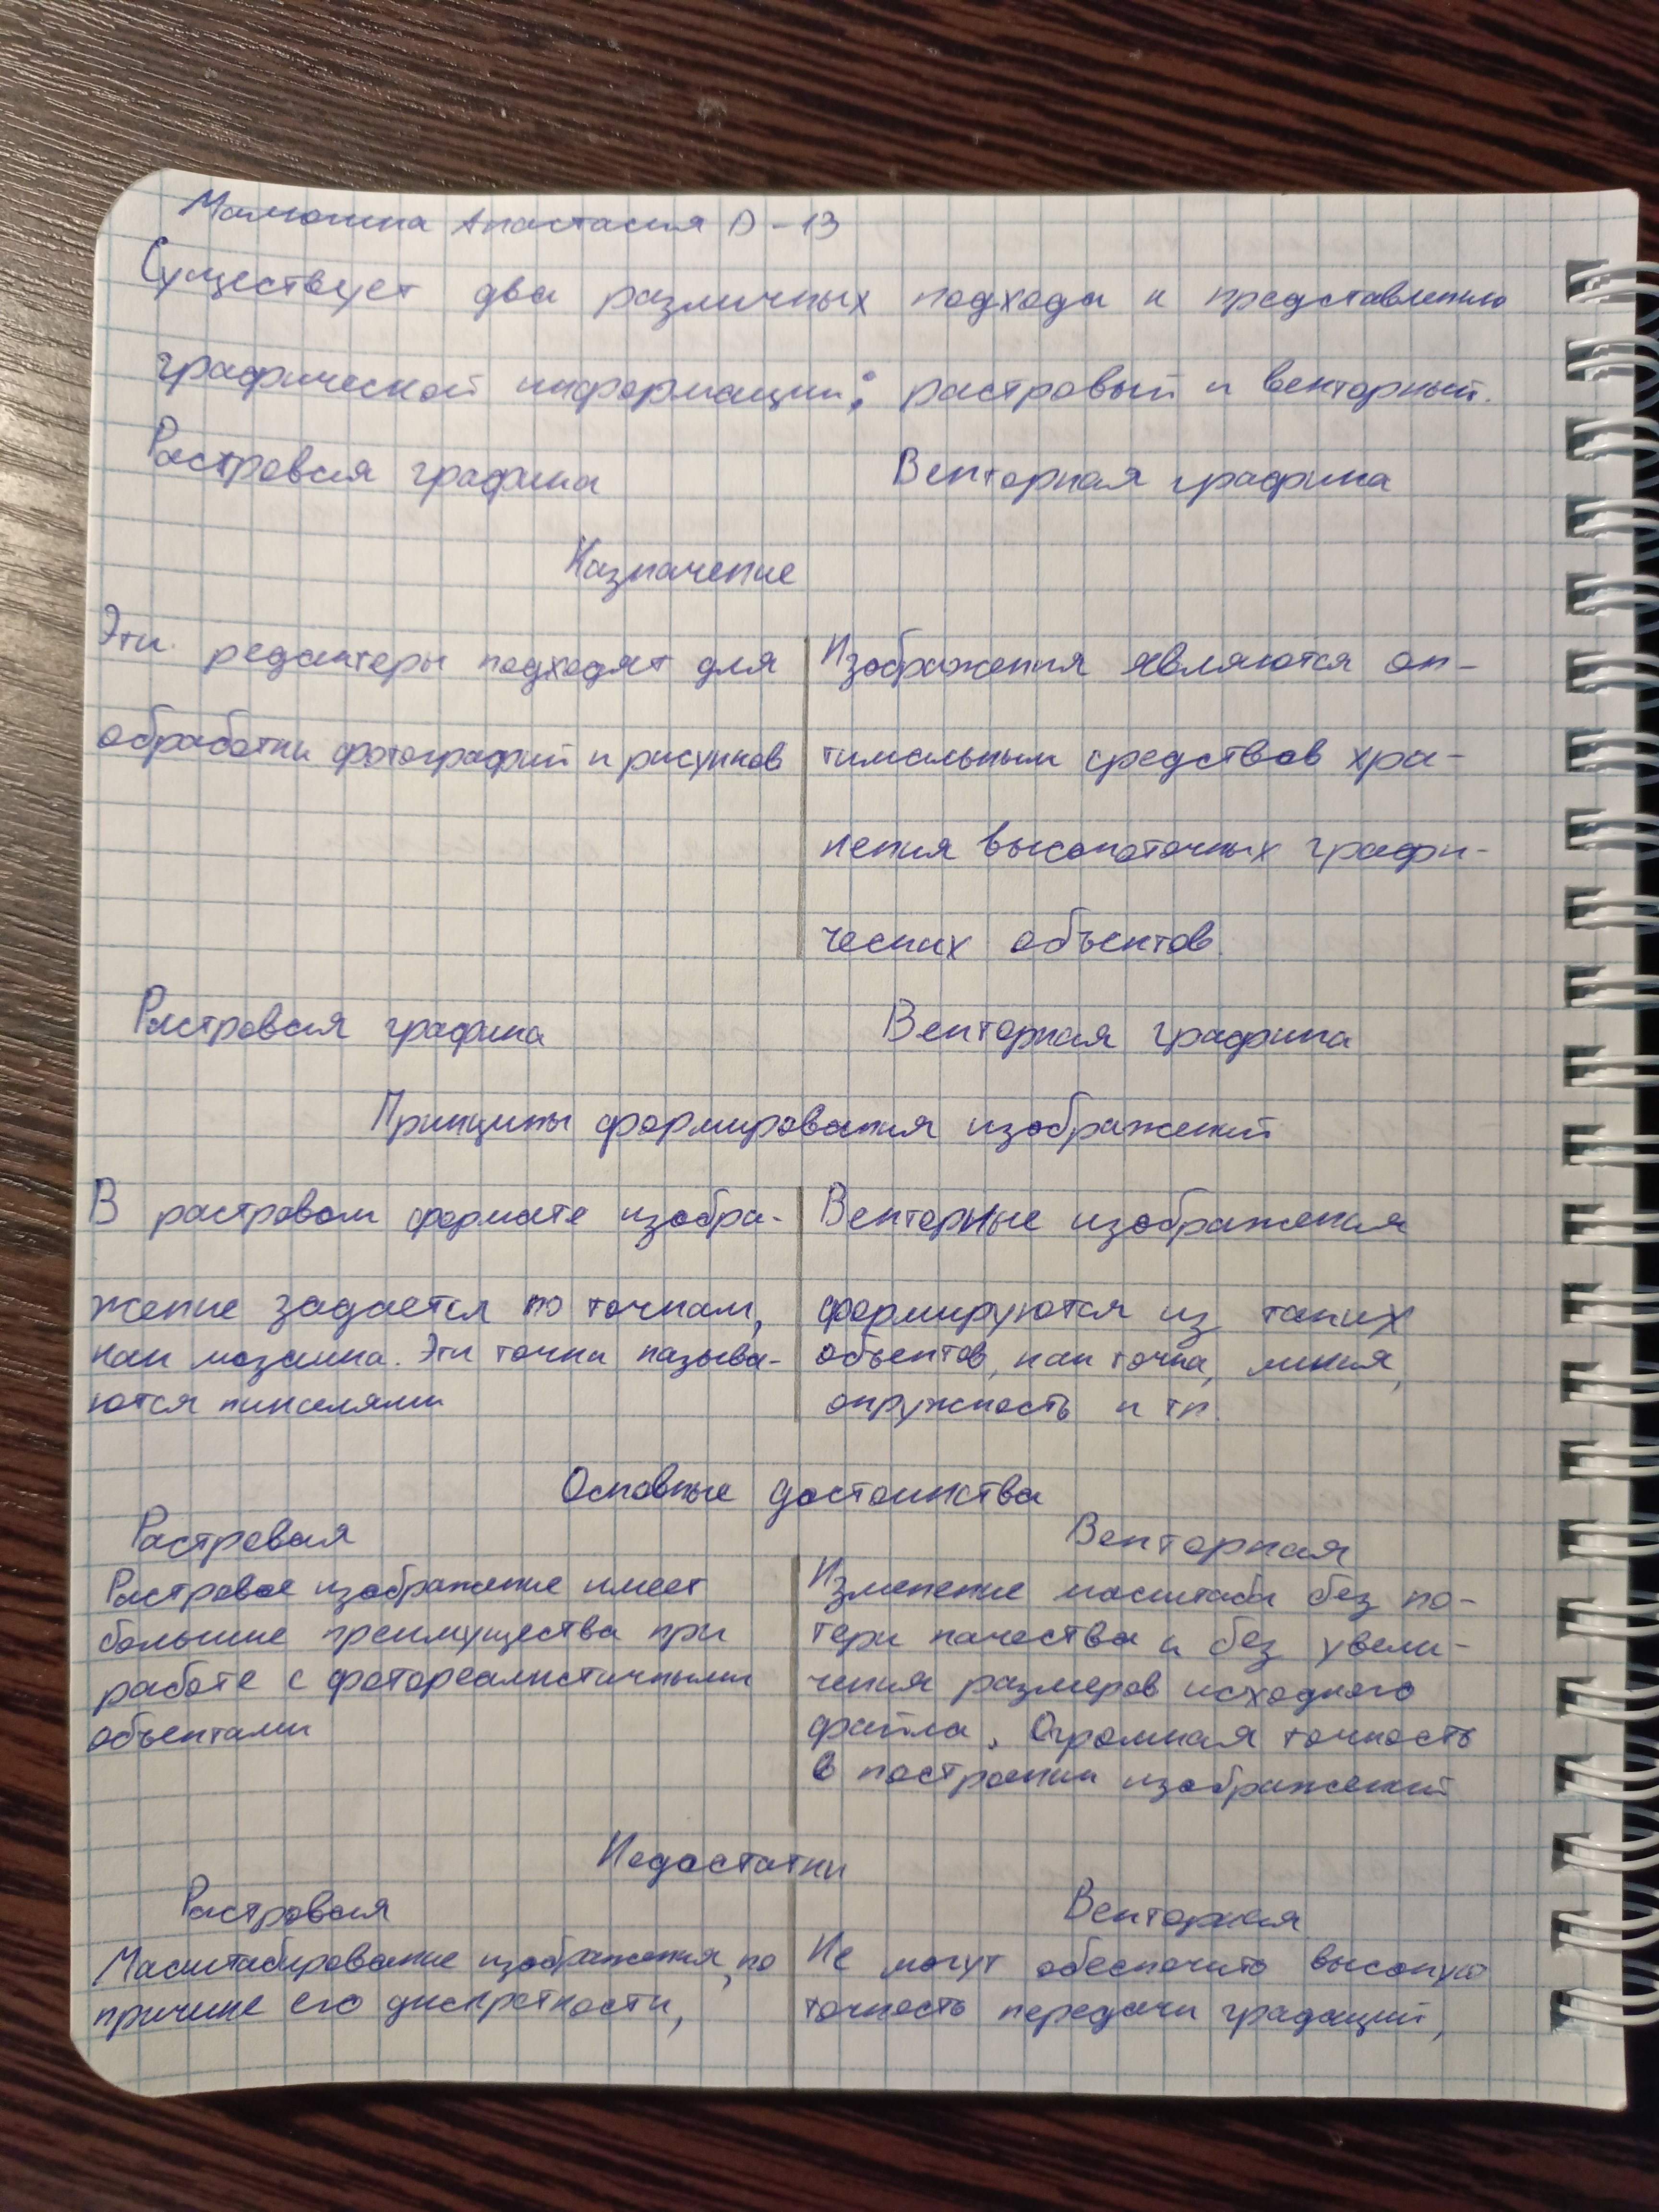 Малюшина Анастасия D-13
Существует два различных подхода к представлению
графической информации: растровый и векторный.
Растровая графика Векторная графика
Назначение
Эти редакторы подходят для
обработки фотографий и рисунков
Изображения являются оп-
тимальным средством хра-
нения высокоточных графи-
ческих объектов.
Растровая графика Векторная графика
Принципы формирования изображений
В растровом формате изобра-
жение задается по точкам,
как мозаика. Эти точки называ-
ются пикселями
Векторные изображения
формируются из таких
объектов, как точка, линия,
окружность и тп.
Основные достоинства
Растровая
Растровое изображение имеет
большие преимущества при
работе с фотореалистичными
объектами
Векторная
Изменение масштаба без по-
тери качества и без увели-
чения размеров исходного
файла. Огромная точность
в построении изображений
Недостатки
Растровая
Масштабирование изображения, по
причине его дискретности,
Векторная
Не могут обеспечить высокую
точность передачи градаций,